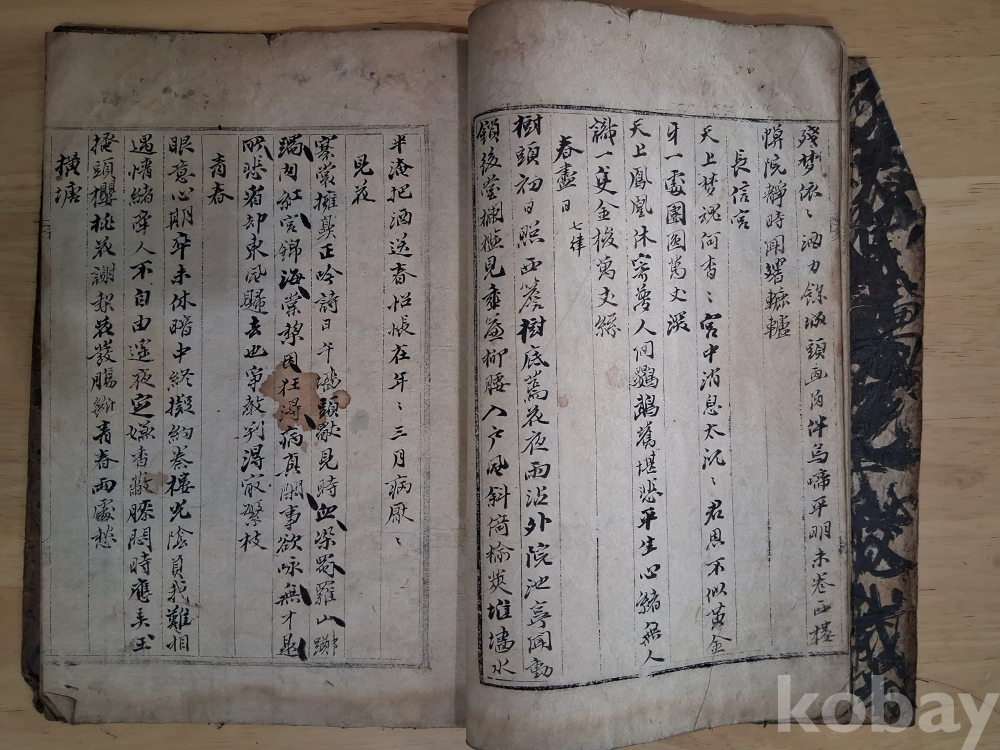 殘夢依〻酒力餘城頭畫角伴烏啼平明未卷西樓
幙院靜時聞響轆轤
長信宮
天上夢魂何杳〻宮中消息太沉〻君恩不似黃金
井一處團圓萬丈深
天上鳳凰休寄夢人間鸚鵡舊堪悲平生心緒無人
識一隻金梭萬丈絲
春盡日 七律
樹頭初日照西簷樹底蔫花夜雨沾外院池亭聞動
鎖後堂欄檻見垂簾柳腰入戶風斜倚榆莢堆墻水
半淹把酒送春惆悵在年〻三月病厭〻
見花
褰裳擁鼻正吟詩日午墻頭獨見時血染蜀羅山躑
躅肉紅宮錦海棠梨因狂得病真閑事欲咏無才是
所悲看却東風歸去也爭教判得最繁枝
青春
眼意心期卒未休暗中終擬約秦樓光陰負我難相
遇情緒牽人不自由遙夜定嫌香蔽膝悶時應弄玉
搔頭櫻桃花謝梨花發腸斷青春兩處愁
橫塘
kobay